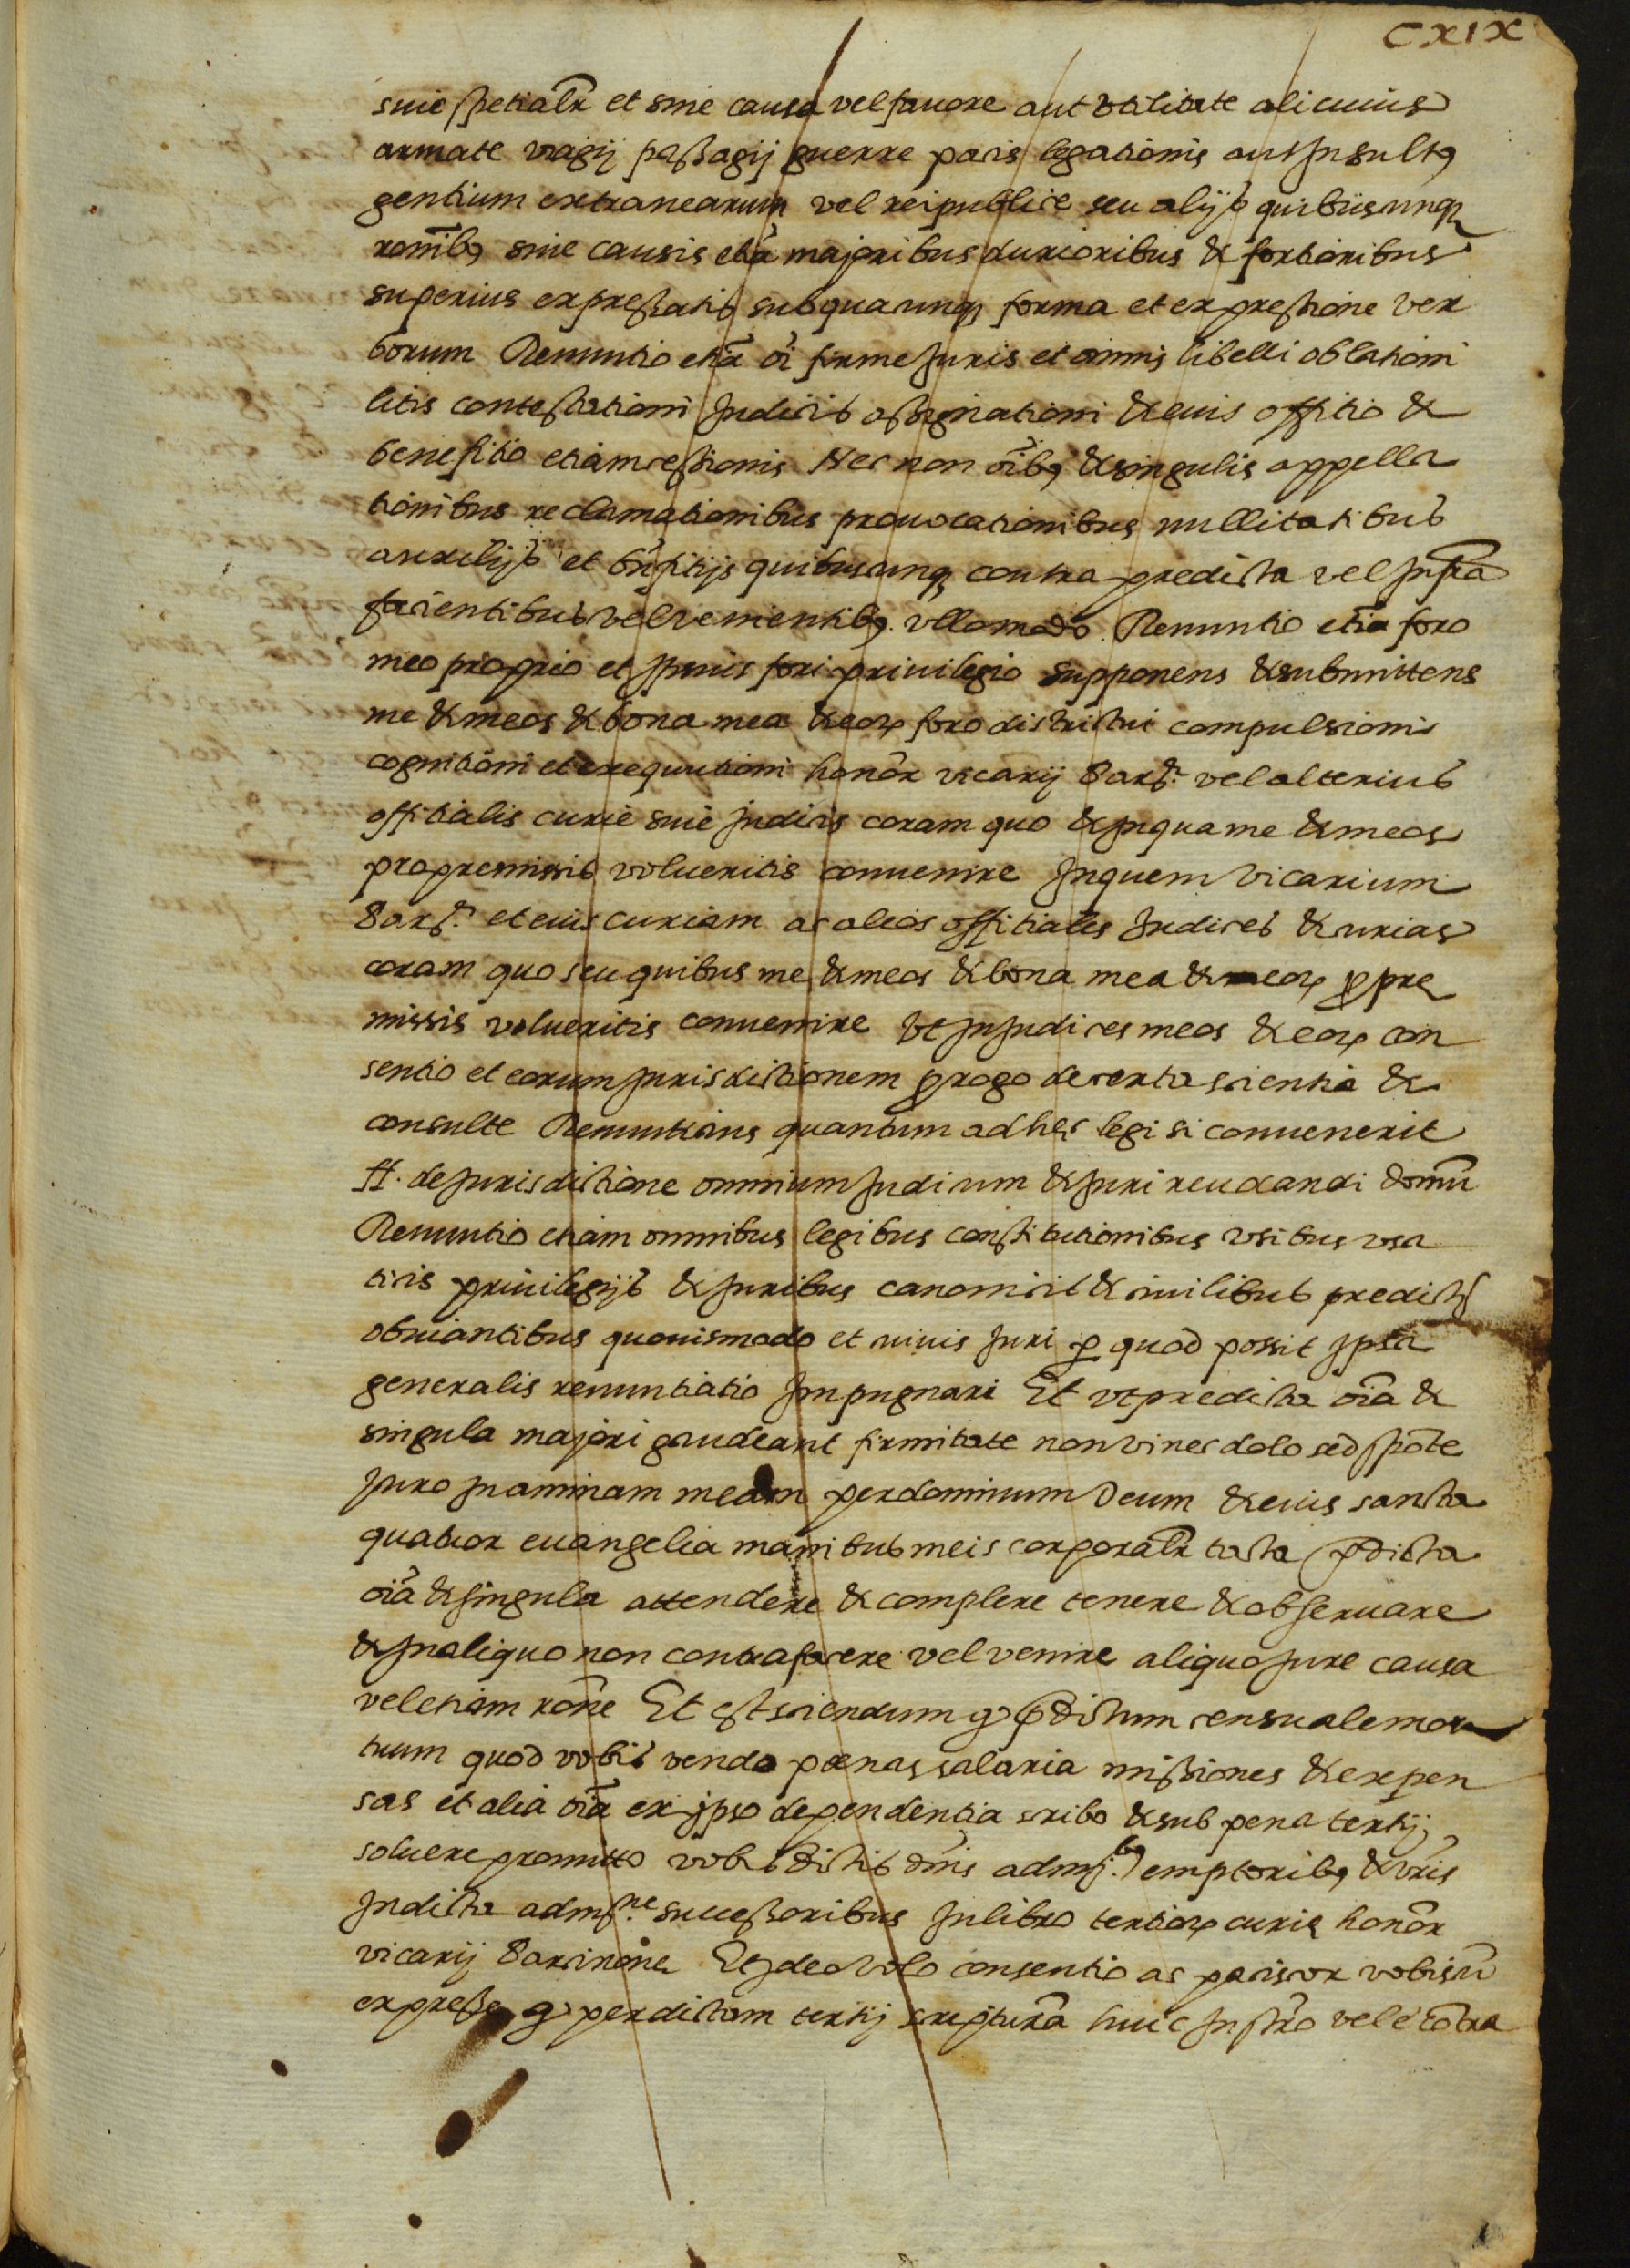 CXIX
suie spetialr̃ et sine causa vel fauore aut vtilitate alicuius
armate viagij passagij guerre pacis legationis aut Jnsultꝯ
gentium extranearum vel reipublice seu alijs quibuscunqꝫ
rationibꝯ siue causis etiã majoribus durioribus & fortioribus
superius expressatis sub quacunqꝫ forma et expressione ver
borum Renuntio etiã oĩ firme Juris et omnis libelli oblationi
litis contestationi Judicis assignationi & euis offitio &
benefitio etiam cessionis Nec non oĩbꝯ & singulis appella
tionibus reclamationibus prouocationibus nullitatibus
auxilijs et bñfitijs quibuscunqꝫ contra predicta vel Jnfrã
facientibus vel venientibꝯ vllo modo Renuntio etiã foro
meo proprio et Jpsius fori priuilegio supponens & submittens
me & meos & bona mea & eoꝝ foro districtui compulsioni
cognitioni et exequutioni honõr vicarij Barꝫ.ᵉ vel alterius
offitialis curie siue Judicis coram quo & Jn qua me & meos
pro premissis volueritis conuenire Jn quem vicarium
Barꝫ.ᵉ et euis curiam ac alios offitiales Judices & curias
coram quo seu quibus me & meos & bona mea & eoꝝ ꝓ pre
missis volueritis conuenire vt Jn Judices meos & eoꝝ con
sentio et eorum Jurisdictionem ꝓrogo de certa scientia &
consulte Renuntians quantum ad hec legi si conuenerit
ff. de Jurisdictione omnium Judicum & Juri reuocandi domũ
Renuntio etiam omnibus legibus constitutionibus vsibus vsa
ticis priuilegijs & Juribus canonicis & ciuilibus predictꝭ
obuiantibus quouismodo et cuiuis Juri ꝑ quod possit Jpsa
generalis renuntiatio Jmpugnari Et vt predicta oĩa &
singula majori gaudeant firmitate non vi nec dolo sed spõte
Juro Jn animam meam per dominum Deum & euis sancta
quatuor euangelia manibus meis corporalr̃ tacta p̃dicta
oĩa & singula attendere & complere tenere & obseruare
& Jn aliquo non contrafacere vel venire aliquo Jure causa
vel etiam rõne Et est sciendum ꝙ p̃dictum censuale mor
tuum quod vobis vendo pœnas salaria missiones & expen
sas et alia oĩa ex ipso dependentia scribo & sub pena tertij
soluere promitto vobis dictis dñis admj.ᵇꝯ emptoribꝯ & vr̃is
Jn dicta admjⁿᵉ successoribus Jn libro tertioꝝ curie honõr
vicarij Barcinone Et Jdeo volo consentio ac paciscor vobiscũ
expresse ꝙ per dictam tertij scripturã huic Jnstr̃o vel e cõtra